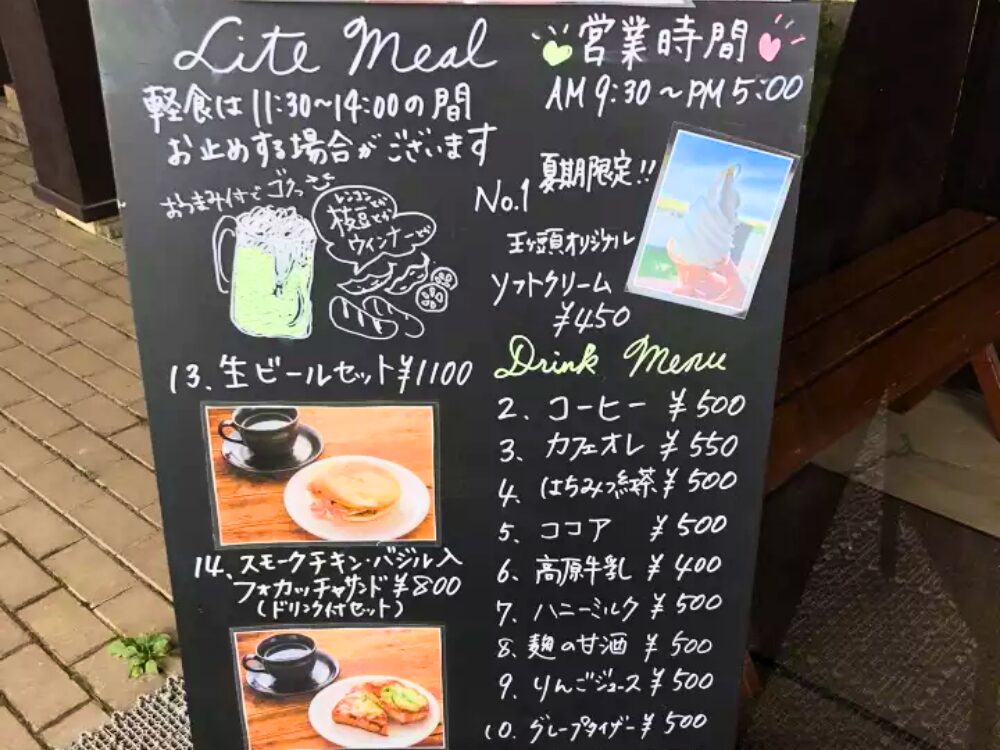 Lite Meal
軽食は11:30～14:00の間
お止めする場合がございます
おつまみ付でゴクっ
レンコンとか
枝豆とか
ウィンナーとか
13.生ビールセット¥1100
14.スモークチキン・バジル入
フォカッチャサンド¥800
(ドリンク付セット)
営業時間
AM9:30～PM5:00
夏期限定!!
No.1
王ヶ頭オリジナル
ソフトクリーム
¥450
Drink Menu
2.コーヒー ¥500
3.カフェオレ ¥550
4.はちみつ紅茶¥500
5.ココア ¥500
6.高原牛乳 ¥400
7.ハニーミルク ¥500
8.麹の甘酒 ¥500
9.りんごジュース¥500
10.グレープタイザー¥500